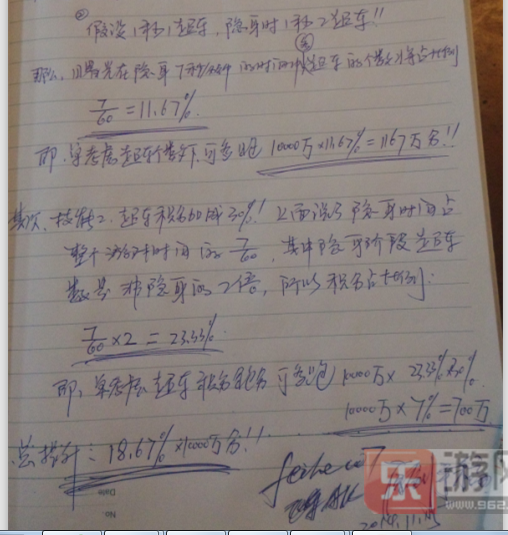 ②
假设1秒1超车，隐身时1秒2超车!!
那么，因为光在隐身7秒 的时间 超车的个数 占比例
7/60 = 11.67%.
即，单考虑超车个数下，可多跑 10000万×11.67% = 1167万分!!
其次，技能2，超车积分加成30%! 上面说了隐身时间占
整个 时间的 7/60，其中隐身阶段超车
数是非隐身的2倍，所以积分占比例:
7/60 × 2 = 23.33%.
即，单考虑超车积分 可多跑 10000万 × 23.33%×30%.
10000万 × 7% = 700万
总提升: 18.67% × 10000万分!!
Date
No.
乐游网
www.962.